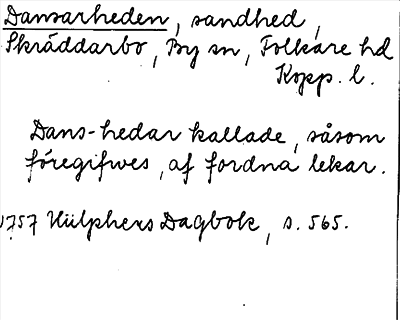 Dansarheden, sandhed,
Skräddarbo, By sn, Folkare hd
Kopp. l.
Dans-hedar kallade, såsom
föregifwes, af fordna lekar.
1757 Hülphers Dagbok, s. 565.